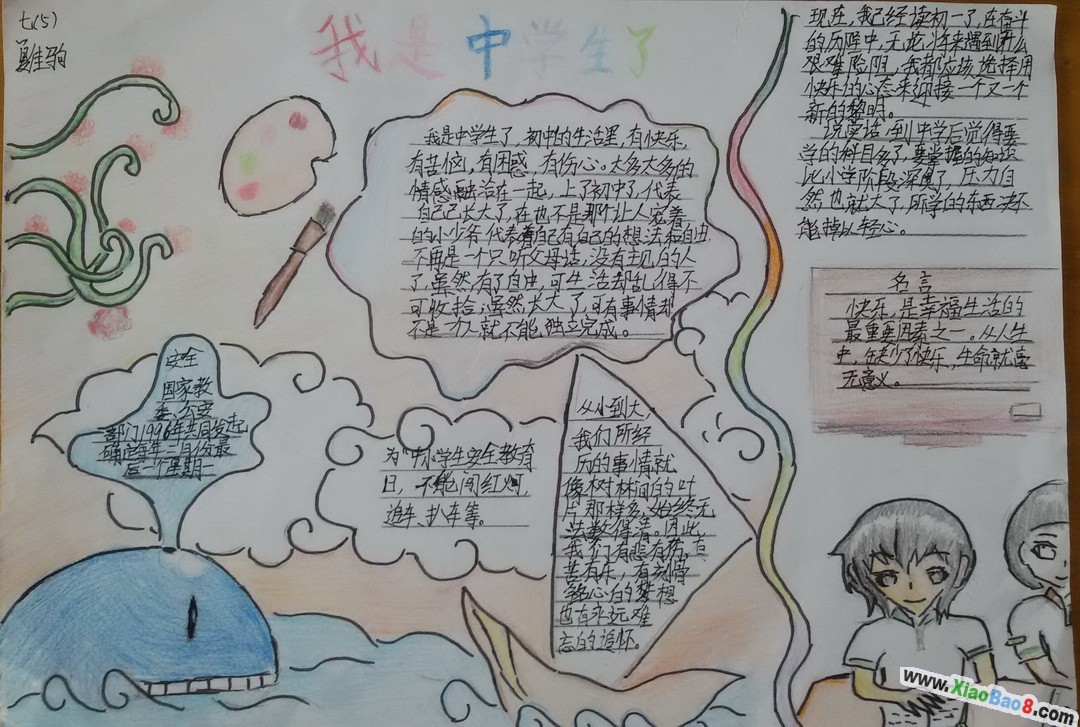 七(5)
我是中学生了
我是中学生了，初中的生活里，有快乐，
有苦恼，有困惑，有伤心。太多太多的
情感融洽在一起，上了初中了，代表
自己己长大了，在也不是那个让人宠着
的小少爷 代表着自己有自己的想法和自由
不再是一个只听父母话，没有主见的人
了，虽然，有了自由，可生活却乱得不
可收拾；虽然长大了，可有事情却
不是一人就不能，独立完成。
现在，我已经读初一了，在奋斗
的历程中，无论将来遇到什么
艰难险阻，我都应该选择用
快乐的心态来迎接一个又一个
新的黎明。
说实话，到中学后觉得要
学的科目多了，要掌握的知识
比小学阶段深奥了，压力自
然也就大了，所学的东西决不
能掉以轻心。
名言
快乐，是幸福生活的
最重要因素之一。从人生
中，缺少了快乐，生命就毫
无意义。
安全
国家教
委、公安
部门1996年共同发起
确定每年三月份最
后一个星期一
为“中小学生安全教育
日，不能闯红灯，
追车、扒车等。
从小到大，
我们所经
历的事情就
像树林间的叶
片那样多，始终无
法数得清。因此，
我们有悲有伤，有
苦有乐，有刻骨
铭心的梦想
也有永远难
忘的追怀。
www.XiaoBao8.com